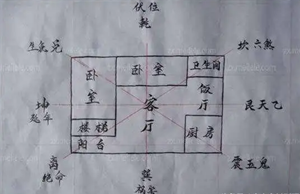 伏位
乾
生炁兑
坎六煞
卧室
卧室
卫生间
坤
延年
客厅
饭厅
艮天乙
楼梯
厨房
阳台
离
绝命
巽
祸害
震五鬼